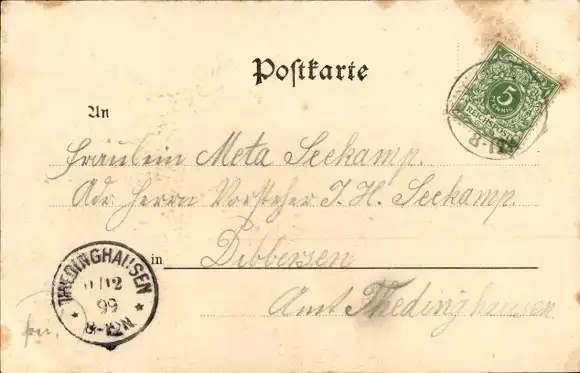 Postkarte
5
REICHSPOST
An
Fräulein Meta Seekamp.
Adr. Herrn Vorsteher J. H. Seekamp.
in Dibbersen
Amt Thedinghausen
THEDINGHAUSEN
11/12
99
8-12N